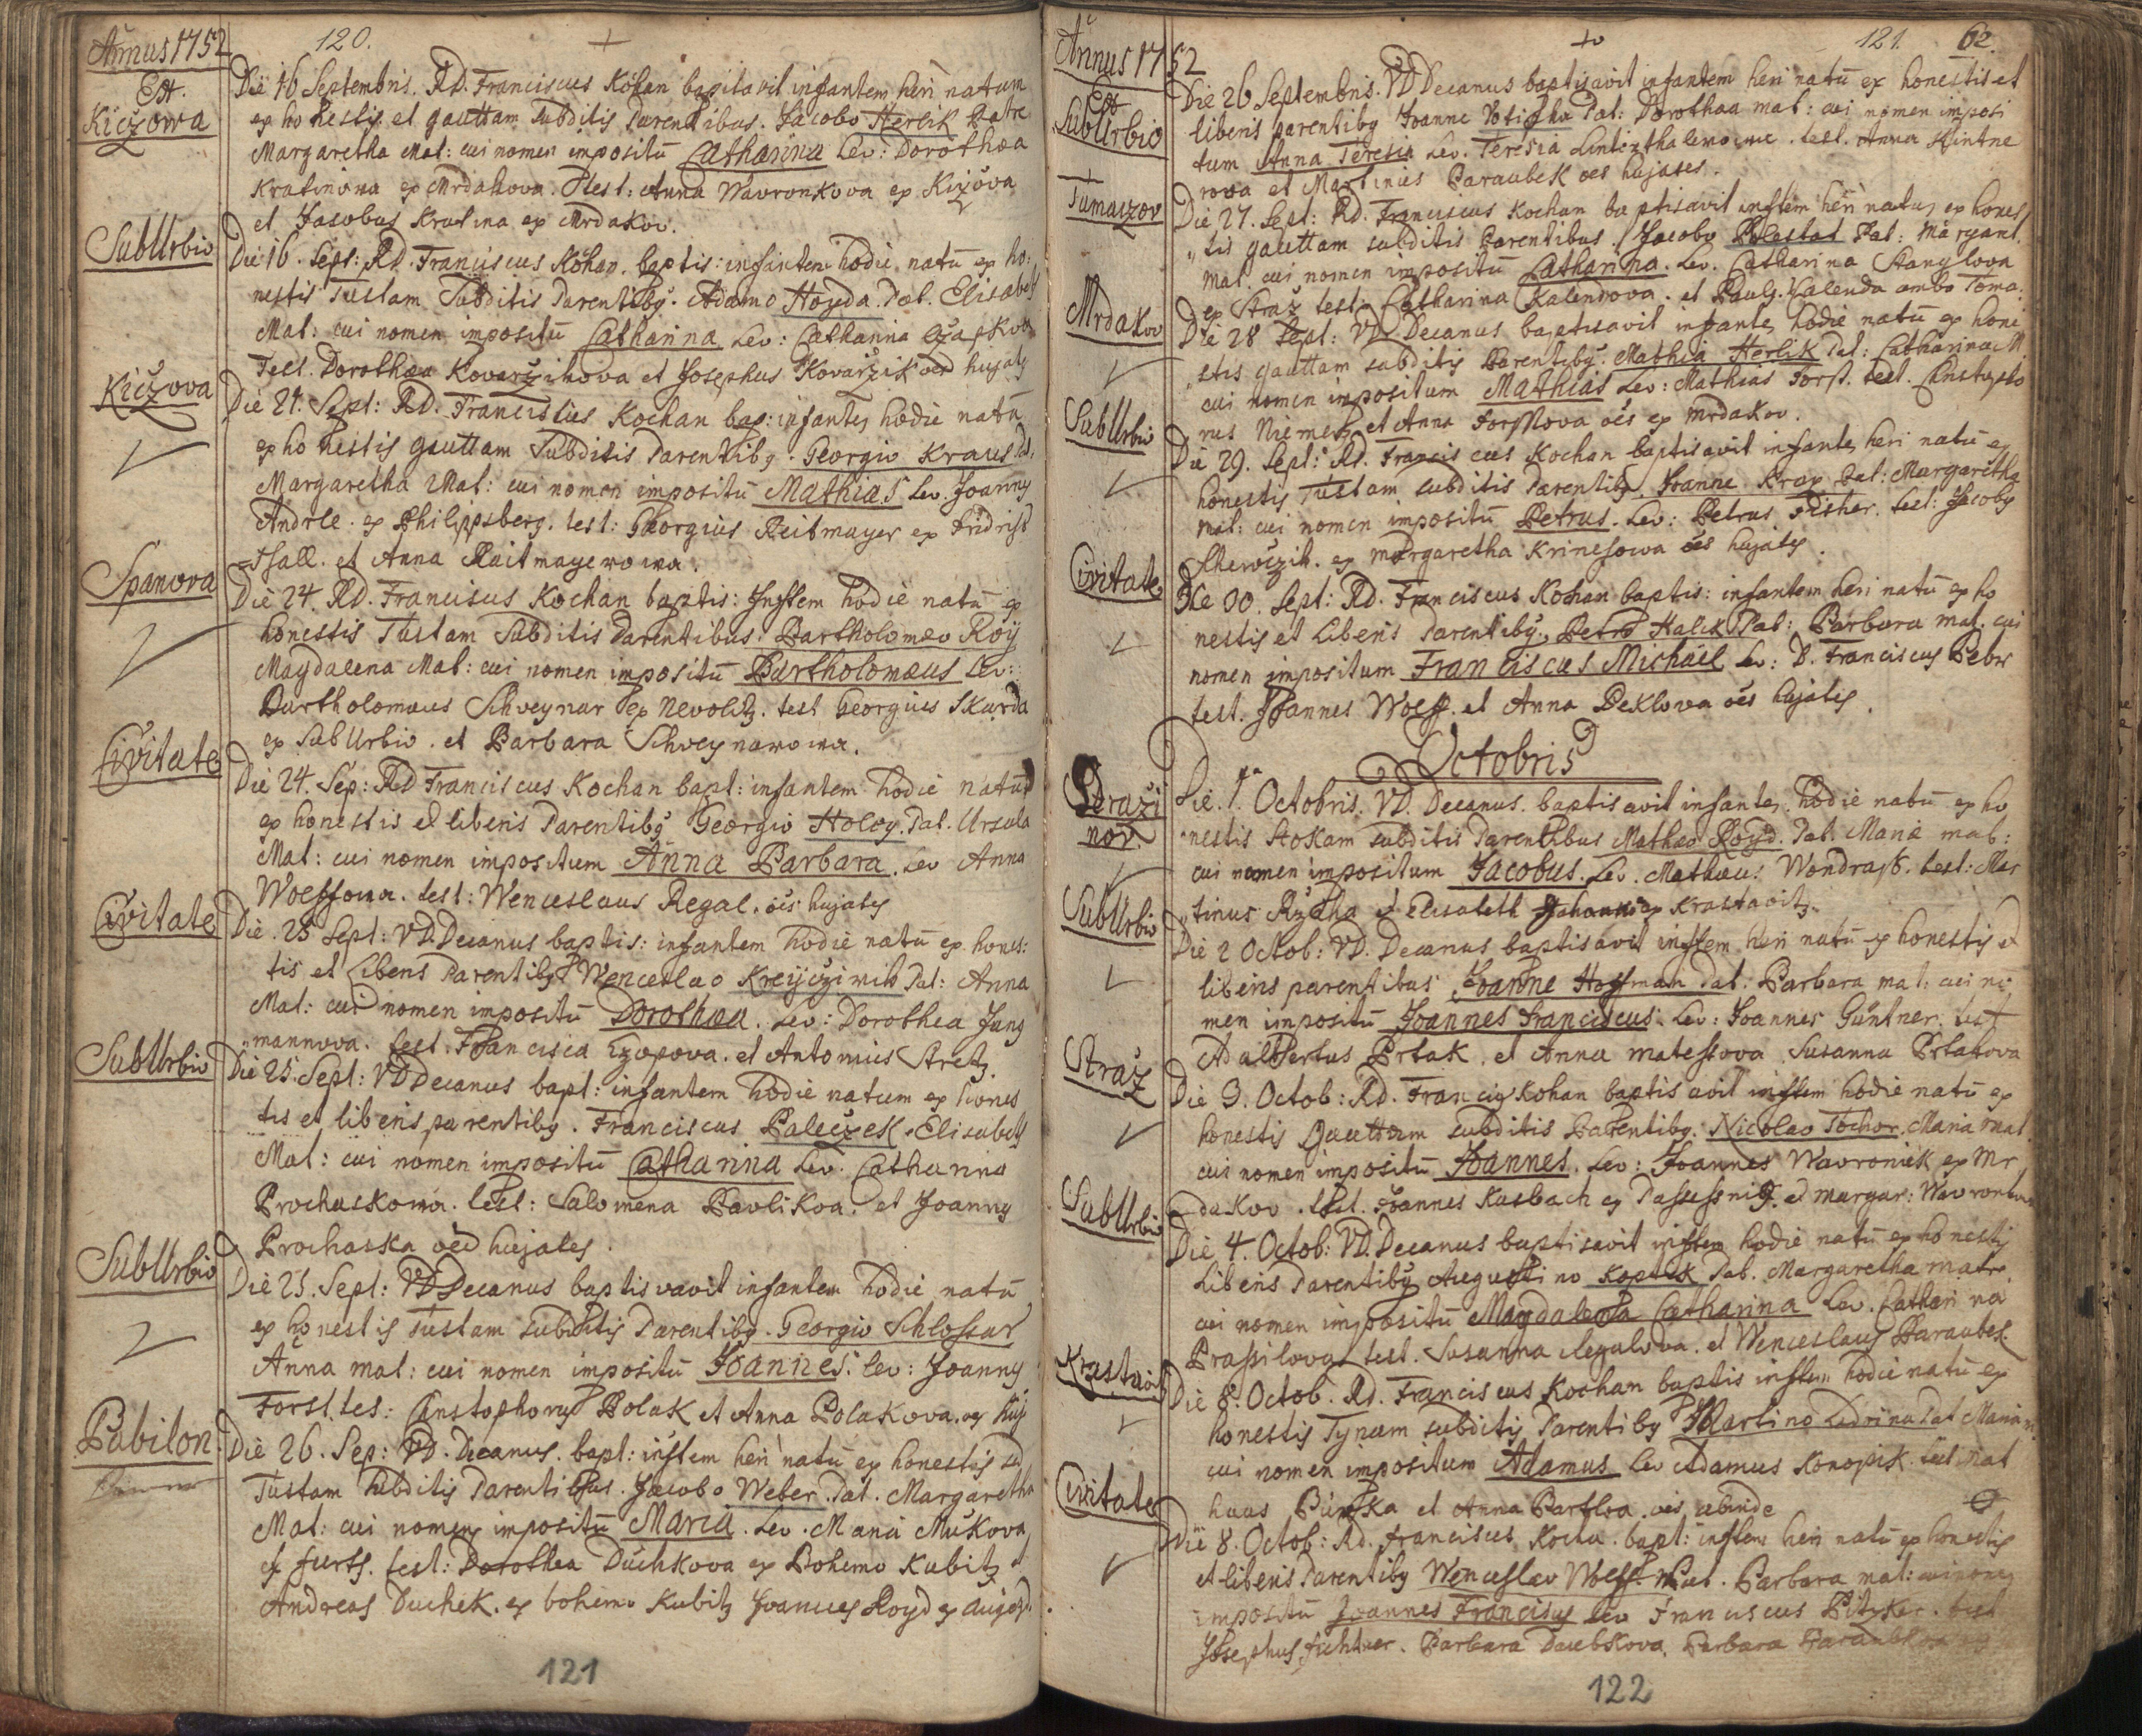 Annus 1752
120.
Est.
Kiczowa
Die 16 Septembris. Rd. Franciscus Kohan baptavit infantem heri natum
ex honestis et gauttam Subditis Parentibus. Jacobo Herlik Patre
Margaretha Mat: cui nomen impositū Catharina Lev: Dorothæa
Kratinowa ex Mrdakova. Test: Anna Wavronkova ex Kizova
et Jacobus Kratina ex Mrdakov.
SubUrbio
Die 16. Sept: Rd. Franciscus Kohan. baptis: infantem hodie natū ex ho:
nestis Tustam Subditis Parentibg. Adamo Hoyda Pat. Elisabeth
Mat: cui nomen impositū Catharina Lev: Catharina
Test. Dorothæa Kovarzikova et Josephus Kovarzik hujatg
Kiczova
Die 21. Sept: Rd. Franciscus Kochan bap: infantē hodie natū
ex honestis gauttam Subditis Parentibg. Georgio Kraus Pat:
Margaretha Mat: cui nomen impositū Mathias Lev. Joanng
Andrle. ex Philipsberg. test: Georgius Reitmayer ex Fridrist
Thall. et Anna Raitmayerowa.
Spanova
Die 24. Rd. Franciscus Kochan baptis: Instem hodie natū ex
honestis Tustam Subditis Parentibus. Bartholomæo Roÿ
Magdalena Mat: cui nomen impositū Bartholomæus Lev:
Bartholomæus Schveynar ex Nevolitz. test Georgius Skarda
ex SubUrbio. et Barbara Schveynarowa.
Civitate
Die 24. Sep: Rd Franciscus Kochan bapt: infantem hodie natū
ex honestis et liberis Parentibg Georgio Holeg. Pat. Ursula
Mat: cui nomen impositum Anna Barbara. Lev Anna
Woessowa. test: Wenceslaus Regal. oes hujates
Civitate
Die. 25 Sept: VD. Decanus baptis: infantem hodie natū ex hones:
tis et Libens Parentibg Wenceslao Pat: Anna
Mat: cui nomen impositū Dorothea. Lev: Dorothea Jung
mannova. test. Francisca Czopova. et Antonius Stretz.
SubUrbio
Die 25. Sept: VD Decanus bapt: infantem hodie natum ex hones
tis et liberis parentibg. Franciscus Paleczek. Elisabeth
Mat: cui nomen impositū Catharina Lev. Catharina
Prochaskowa. test: Salomena Pavlikoa. et Joanng
Prochaska oēs hujates.
SubUrbio
Die 25. Sept: VD Decanus baptisvavit infantem hodie natū
ex honestis Tustam subditis Parentibg. Georgio Schlossar
Anna mat: cui nomen impositū Joannes. lev: Joanng
Forst. tes: Cristophorus Polak et Anna Polakova. oes huj
Pabilon
Die 26. Sep: VD. Decanus. bapt: instem heri natū ex honestis
Tustam Subditis Parentibus. Jacobo Weber. Pat. Margaretha
Mat: cui nomen impositū Maria. Lev. Maria Mukova
ex furts. test: Dorothea Duchkova ex Bohemo Kubitz et
Andreas Duchek. ex bohemo Kubitz Joannes Royd ex
121
Annus 1752
121. 62.
Est
SubUrbio
Die 26 Septembris. VD Decanus baptisavit infantem heri natū ex honestis et
liberis parentibg Joanne Pat: Dorothæa mat: cui nomen imposi
tum Anna Teresia Lev. Teresia test. Anna Kintne
rova et Martinus Paraubek oes hujates.
Tumaczov
Die 27. Sept: Rd. Franciscus Kochan baptisavit instem heri natū ex hones
tis gauttam subditis Parentibus. Jacobo Pat: Margaret.
Mat. cui nomen impositū Catharina. Lev. Catharina Stanglova
ex Straž test. Catharina Kalendova. et Paulg. Kalenda ambo Toma.
Mrdakov
Die 28 Sept: VD Decanus baptisavit infantē hodie natū ex hone
stis gauttam subditis Parentibg. Mathia Herlik Pat: Catharina M
cui nomen impositum Mathias Lev: Mathias Forst. test. Cristopho
rus Niemetz et Anna Forstova oēs ex Mrdakov.
SubUrbio
Die 29. Sept: Rd. Franciscus Kochan baptisavit infantē heri natū ex
honestis Tustam subditis Parentibg. Joanne Pat: Margaretha
mat: cui nomen impositū Petrus. Lev: Petrus Fisher. test: Jacobg
ex Margaretha Krinesowa oēs hujates.
Civitate
Die 30. Sept: Rd. Franciscus Kohan baptis: infantem heri natū ex ho
nestis et Liberis Parentibg. Petro Halik Pat: Barbara mat. cui
nomen impositum Franciscus Michael Lev: D. Franciscus Pebr
test. Joannes Woess. et Anna Peklowa oēs hujates.
Octobris
Strazi
nov.
Die. 1ma Octobris. VD. Decanus. baptisavit infantē hodie natū ex ho
nestis Stokam subditis Parentibus Mathæo Royd. Pat. Maria mat:
cui nomen impositum Jacobus. Lev. Mathæus Wondrasch. test: Mar
tinus et Elisabeth ex Krastavitz.
SubUrbio
Die 2 Octob: VD. Decanus baptisavit instem heri natū ex honestis et
liberis parentibus Joanne Hoffman Pat: Barbara mat: cui no
men impositū Joannes Franciscus. Lev: Joannes Güntner. test
Adalbertus Prtak. et Anna matessova Susanna Prtakova
Straž
Die 3. Octob: Rd. Franciscg Kohan baptisavit instem hodie natū ex
honestis Gauttam subditis Parentibg. Nicolao Tochor. Maria mat
cui nomen impositū Joannes. Lev: Joannes Wavroniek ex Mr
dakov. test. Joannes Kasbach ex et margar: Wavronkova
SubUrbio
Die 4. Octob: VD. Decanus baptisavit instem hodie natū ex honestis
Liberis Parentibg Augustino Koptik Pat. Margaretha matre
cui nomen impositū Magdalena Catharina Lev. Catharina
Praxilova test. Susanna Regulova. et Wenceslaus Paraubek.
Krastaviz
Die 8. Octob. Rd. Franciscus Kochan baptis instem hodie natū ex
honestis Tynam subditis Parentibg Martino Pat Maria m
cui nomen impositum Adamus Lev Adamus Konopik. test Mat
haus et Anna oēs abinde
Civitate
Die 8. Octob: Rd. franciscus Kocha. bapt: instem heri natū ex honestis
et liberis Parentibg Wenceslav Woess. Pat. Barbara mat: cui nomen
impositū Joannes Franciscus lev Franciscus Pitzker. test
Josephus fichtner. Barbara Daubkova. Barbara
122